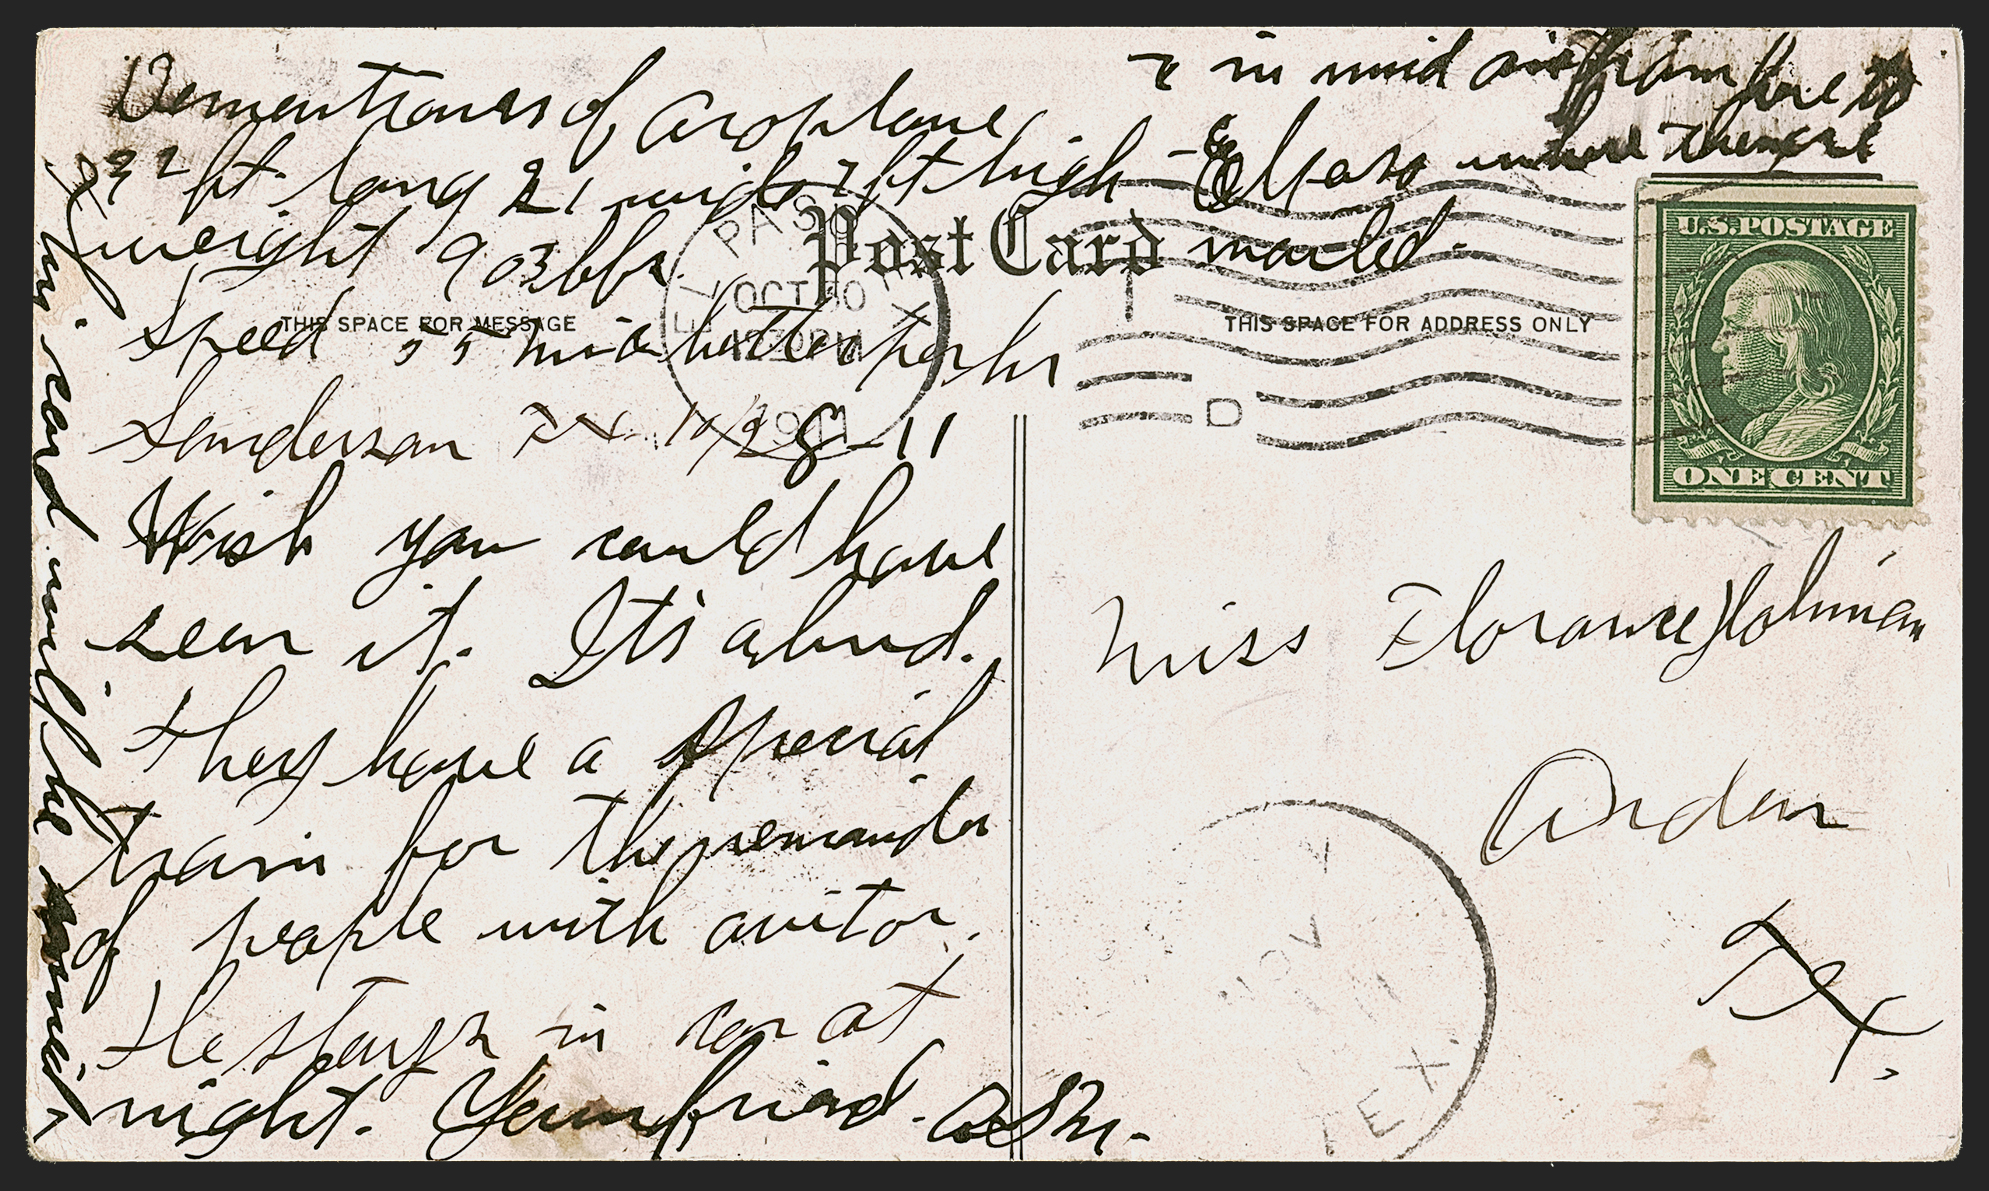 Dementiones of aroplane
32 ft. long 21 wide 7 ft high
weight 903 lbs.
Speed 55 mi a better per hr
Sanderson Tx. 10/28-11
Wish you could have
seen it. It's a bird.
They have a special
train for the remainder
of people with avitor.
He stays in car at
night. Your friend.
This card will be carried
in mid air from here to
El Paso where they are
mailed.
Post Card
THIS SPACE FOR MESSAGE
THIS SPACE FOR ADDRESS ONLY
EL PASO TEX
OCT 30
12 30 PM
1911
D
U.S. POSTAGE
ONE CENT
Miss Florance Holman
Arden
Tx.
NOV
TEX.